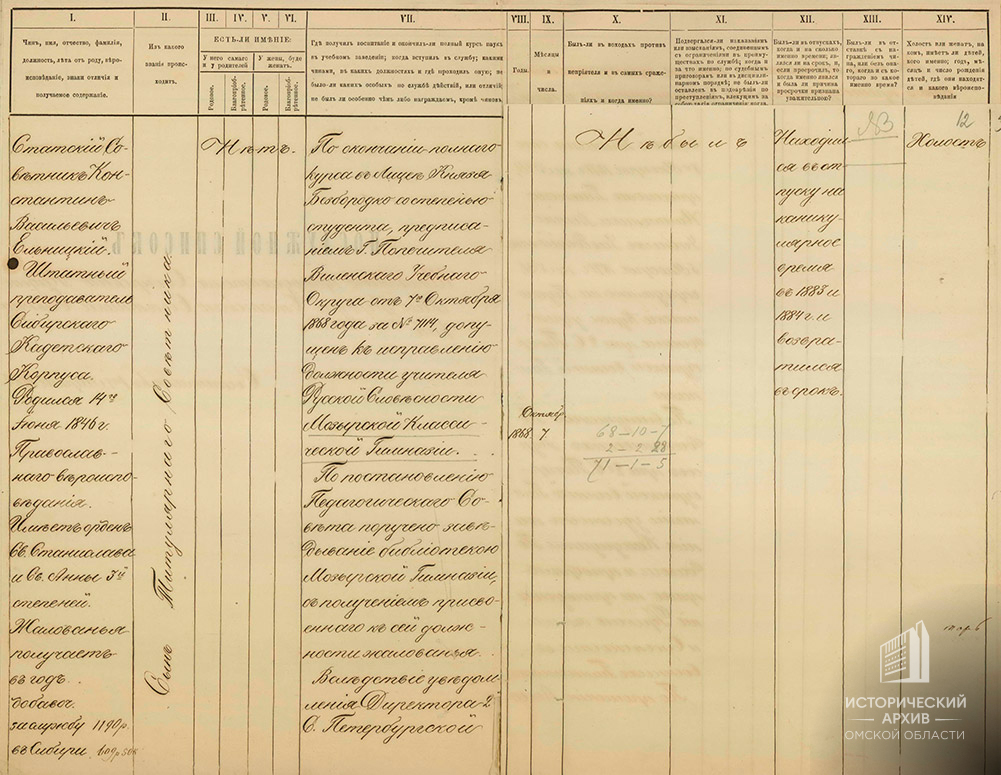 I.
II.
III.
IV.
V.
VI.
VII.
VIII.
IX.
X.
XI.
XII.
XIII.
XIV.
Чинъ, имя, отчество, фамилія,
должность, лѣта отъ роду, вѣро-
исповѣданіе, знаки отличія и
получаемое содержаніе.
Изъ какого
званія проис-
ходитъ.
ЕСТЬ-ЛИ ИМѢНІЕ:
У него самаго
и у родителей
У жены, буде
женатъ.
Родовое.
Благопріоб-
рѣтенное.
Родовое.
Благопріоб-
рѣтенное.
Гдѣ получилъ воспитаніе и окончилъ-ли полный курсъ наукъ
въ учебномъ заведеніи; когда вступилъ въ службу; какими
чинами, въ какихъ должностяхъ и гдѣ проходилъ оную; не
было-ли какихъ особыхъ по службѣ дѣйствій, или отличій;
не былъ ли особенно чѣмъ либо награждаемъ, кромѣ чиновъ
Годы.
Мѣсяцы
и
числа.
Былъ-ли въ походахъ противъ
непріятеля и въ самыхъ сраже-
ніяхъ и когда именно?
Подвергался-ли наказаніямъ
или взысканіямъ, соединеннымъ
съ ограниченіями въ преиму-
ществахъ по службѣ; когда и
за что именно; по судебнымъ
приговорамъ или въ дисципли-
нарномъ порядкѣ; не былъ-ли
оставленъ въ подозрѣніи по
преступленіямъ, влекущимъ за
Былъ-ли въ отпускахъ,
когда и на сколько
именно времени; яв-
лялся-ли на срокъ, и,
если просрочилъ, то
когда именно явился
и была ли причина
просрочки признана
уважительною?
Былъ-ли въ от-
ставкѣ съ на-
гражденіемъ чи-
на, или безъ она-
го, когда и съ ко-
тораго по какое
именно время?
Холостъ или женатъ, на
комъ, имѣетъ ли дѣтей,
кого именно; годъ, мѣ-
сяцъ и число рожденія
дѣтей, гдѣ они находят-
ся и какого вѣроиспо-
вѣданія
Статскій Со-
вѣтникъ Кон-
стантинъ
Васильевичъ
Ельницкій.
Штатный
преподаватель
Сибирскаго
Кадетскаго
Корпуса.
Родился 14го
Іюня 1846 г.
Православ-
наго вѣроиспо-
вѣданія.
Имѣетъ ордена
Св. Станислава
и Св. Анны 3й
степеней.
Жалованья
получаетъ
въ годъ
добавоч.
за службу 1190 р.
въ Сибири
Сынъ Титулярнаго Совѣтника.
Нѣтъ.
По окончаніи полнаго
курса въ Лицеѣ Князя
Безбородко со степенью
студента, предписа-
ніемъ Г. Попечителя
Виленскаго Учебнаго
Округа отъ 7го Октября
1868 года за № 7114, допу-
щенъ къ исправленію
должности учителя
Русской Словесности
Мозырской Класси-
ческой Гимназіи.
По постановленію
Педагогическаго Со-
вѣта поручено завѣ-
дываніе библіотекою
Мозырской Гимназіи,
съ полученіемъ присво-
еннаго къ сей долж-
ности жалованья.
Вслѣдствіе увѣдом-
ленія Директора 2й
С. Петербургской
Октябр.
1868 7
68-10-7
2-2 28
71-1-5
Не былъ
Находил
ся въ от-
пуску на
канику-
лярное
время
въ 1883 и
1884 г. и
возвра-
тился
въ срокъ.
12
Холостъ
ИСТОРИЧЕСКИЙ
АРХИВ
ОМСКОЙ ОБЛАСТИ